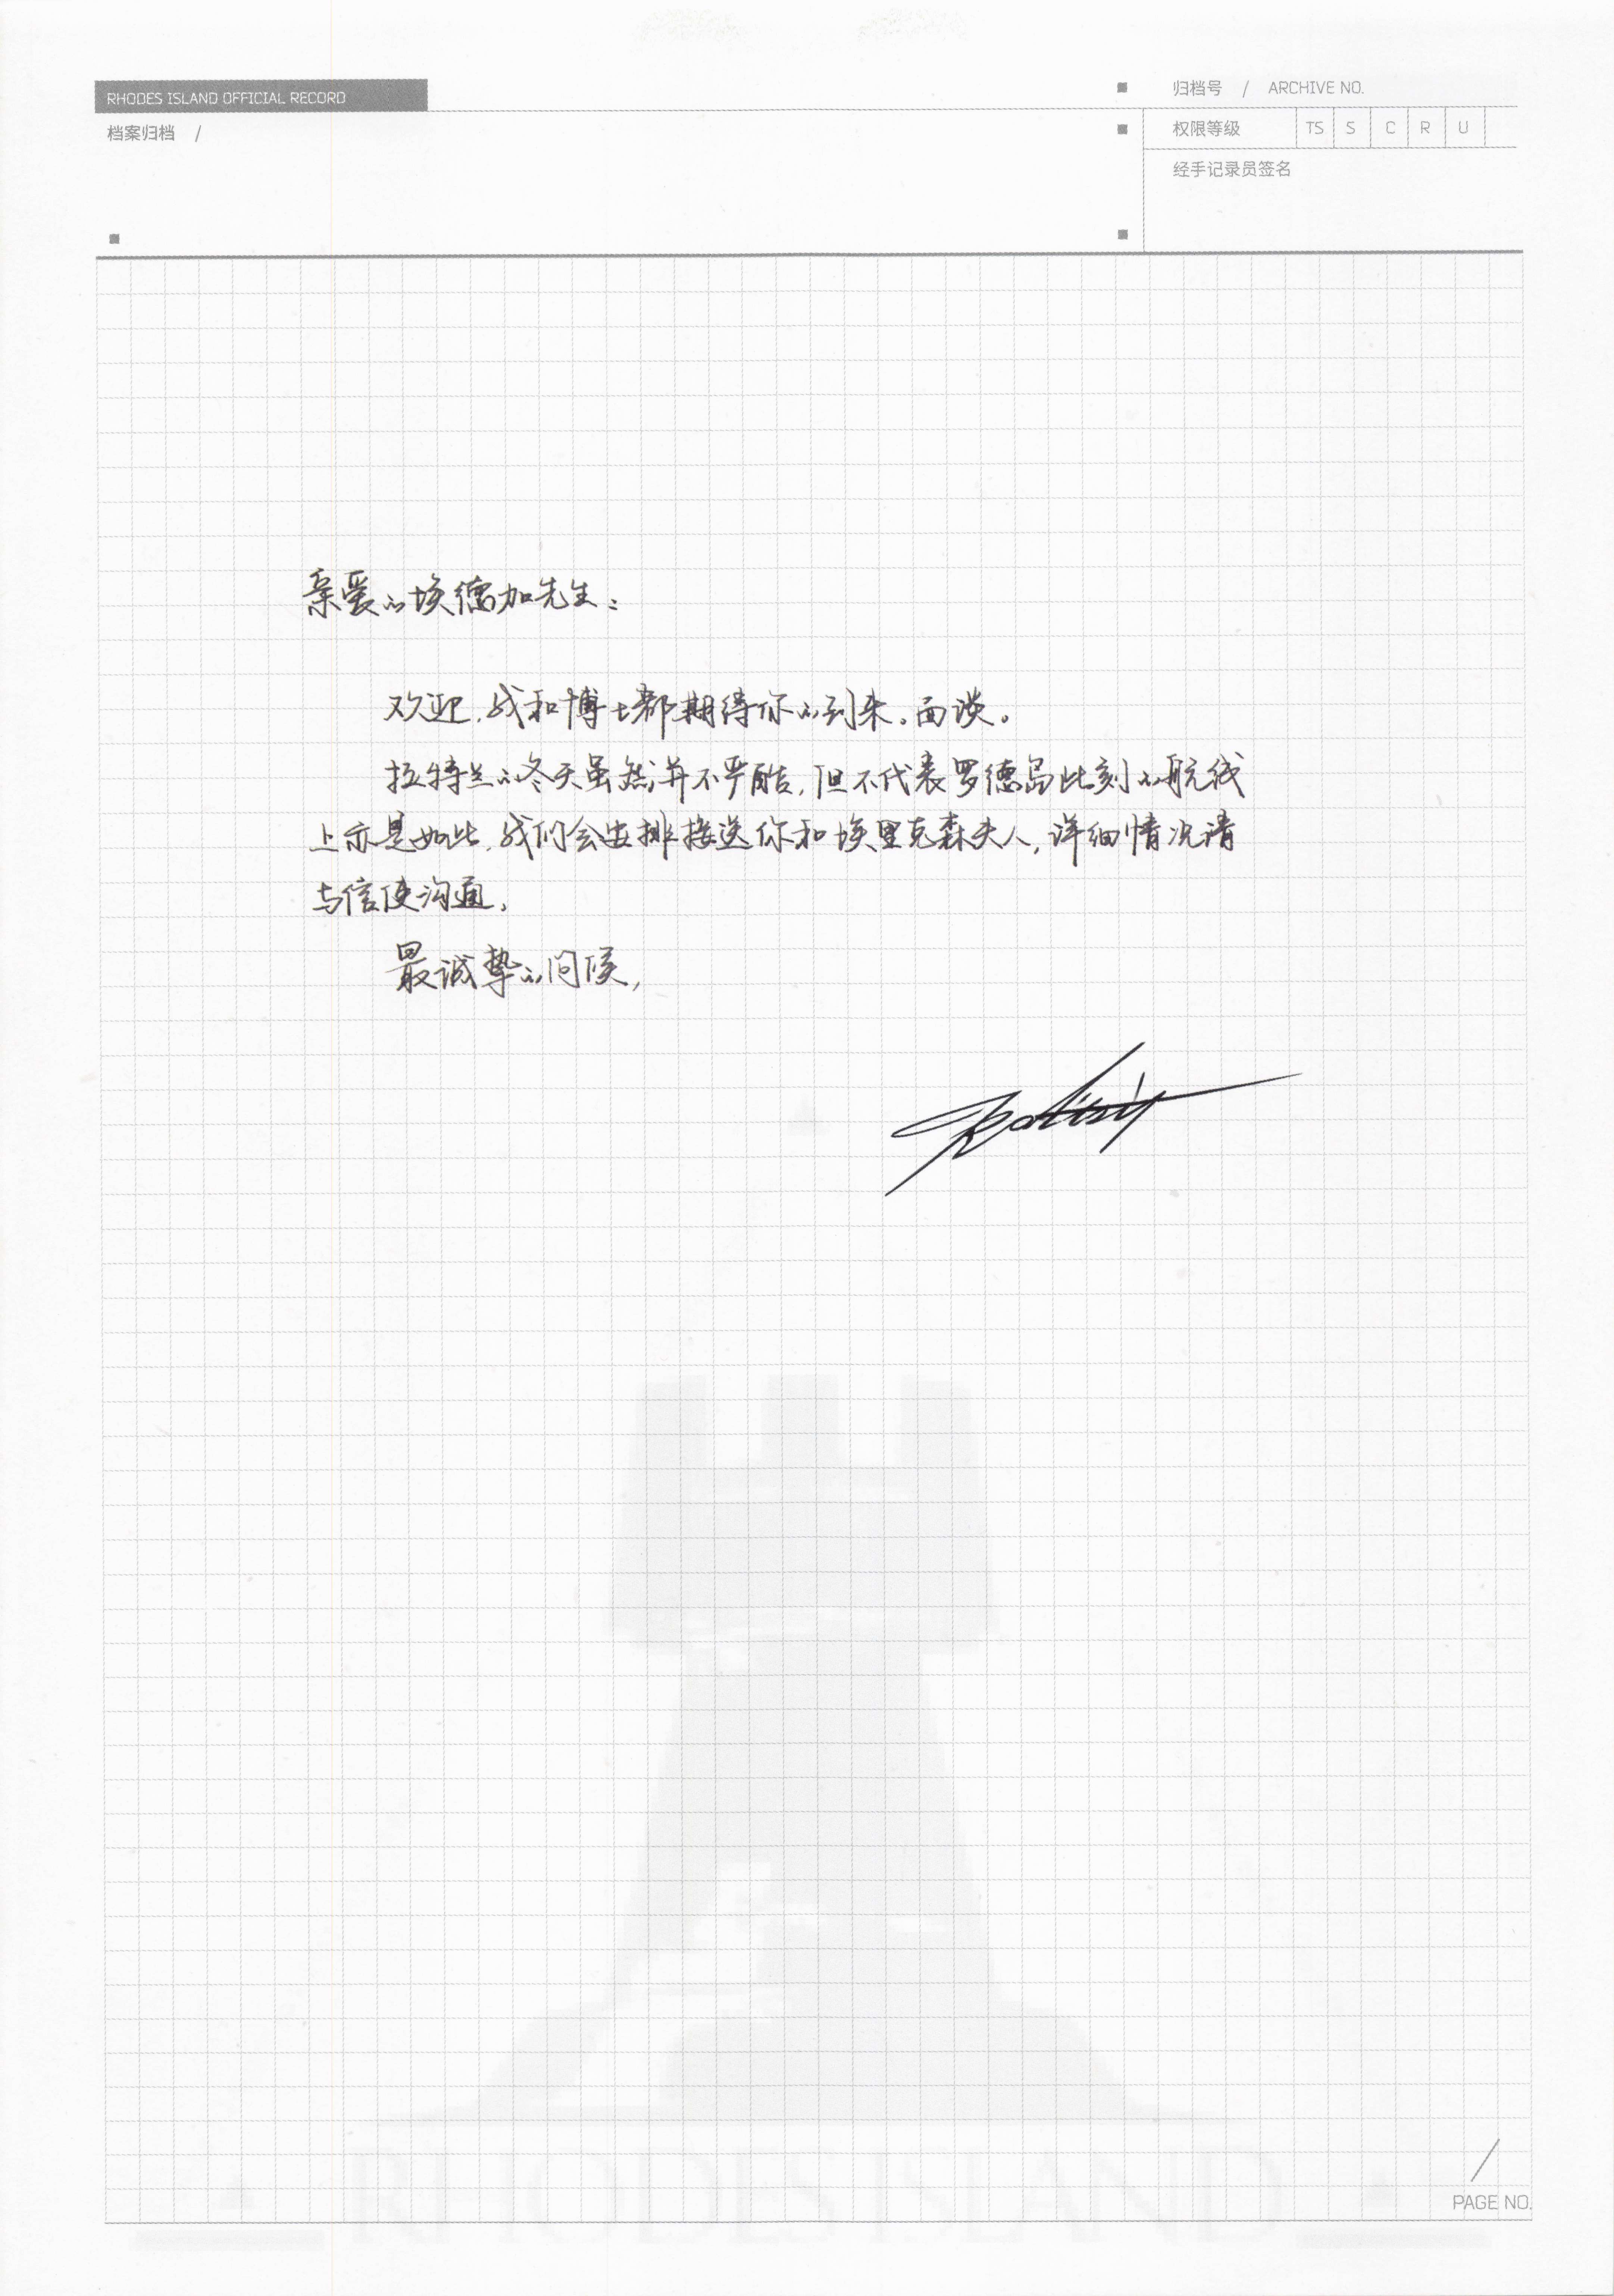 RHODES ISLAND OFFICIAL RECORD
归档号 / ARCHIVE NO.
档案归档 /
权限等级 TS S C R U
经手记录员签名
亲爱的埃德加先生：
欢迎，我和博士都期待你的到来。面谈。
拉特兰的冬天虽然并不严酷，但不代表罗德岛此刻的航线
上亦是如此，我们会安排接送你和埃里克森夫人，详细情况请
与信使沟通，
最诚挚的问候，
PAGE NO.
RHODES ISLAND